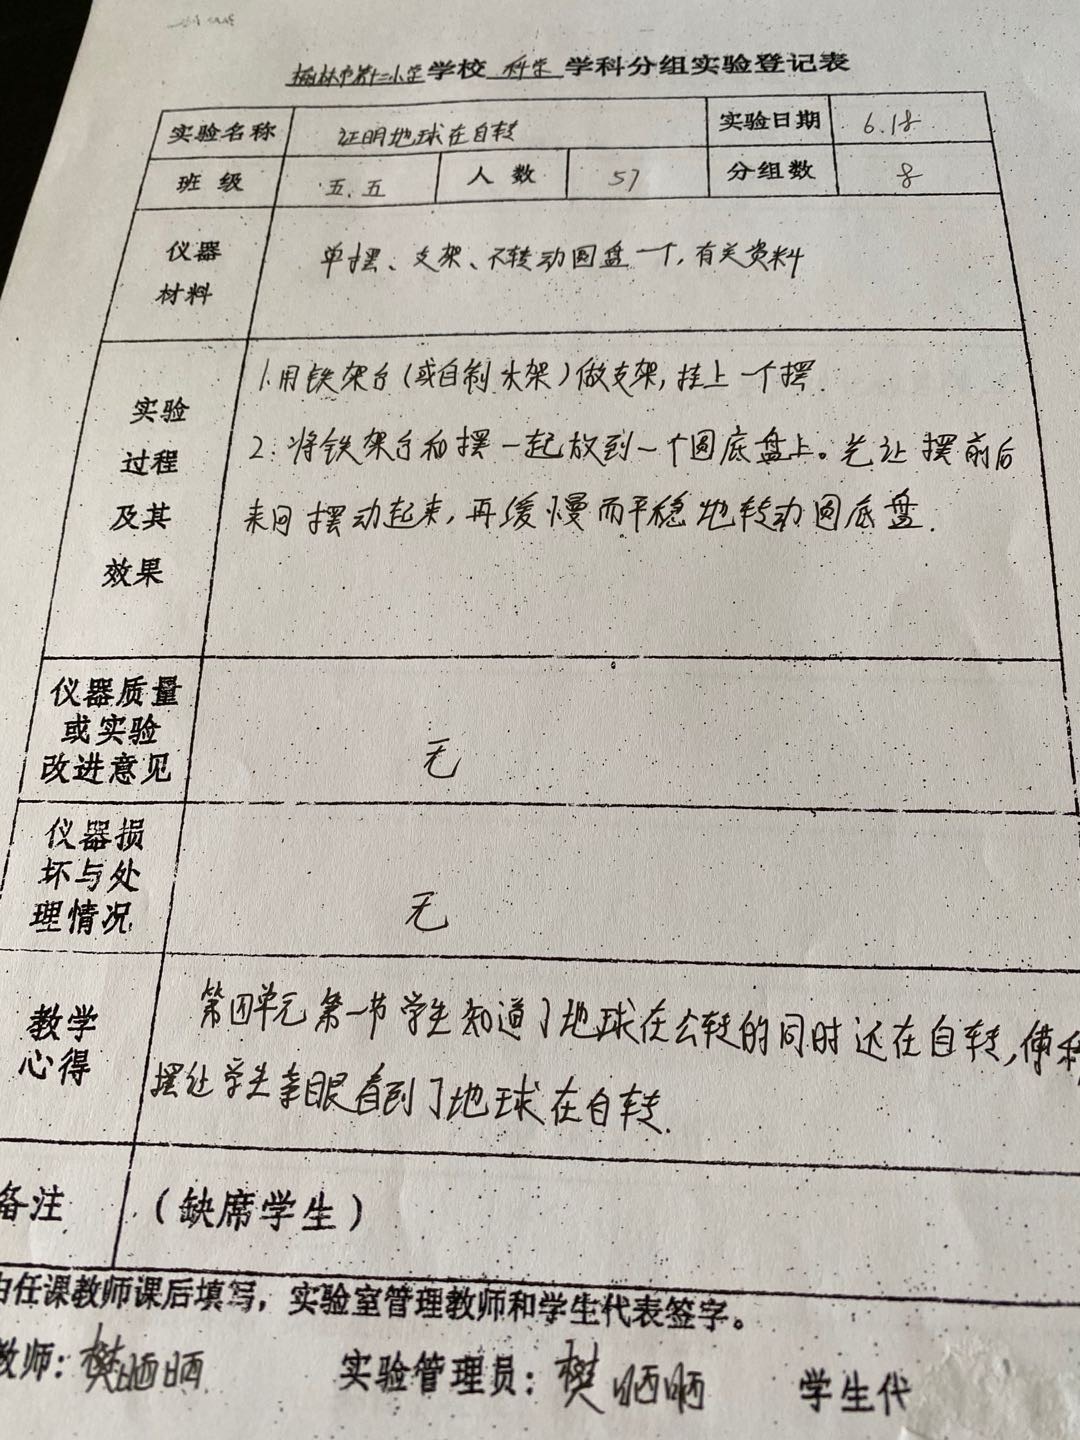 榆林市第十二小学学校 科学 学科分组实验登记表
实验名称 证明地球在自转 实验日期 6.18
班级 五.五 人数 57 分组数 8
仪器材料 单摆、支架、不转动圆盘一个,有关资料
实验过程及其效果
1.用铁架台(或自制木架)做支架,挂上一个摆.
2.将铁架台和摆一起放到一个圆底盘上。先让摆前后
来回摆动起来,再缓慢而平稳地转动圆底盘.
仪器质量或实验改进意见 无
仪器损坏与处理情况 无
教学心得
第四单元第一节学生知道了地球在公转的同时还在自转,使
摆让学生亲眼看到了地球在自转.
备注 (缺席学生)
由任课教师课后填写,实验室管理教师和学生代表签字。
教师:樊晒晒 实验管理员:樊晒晒 学生代